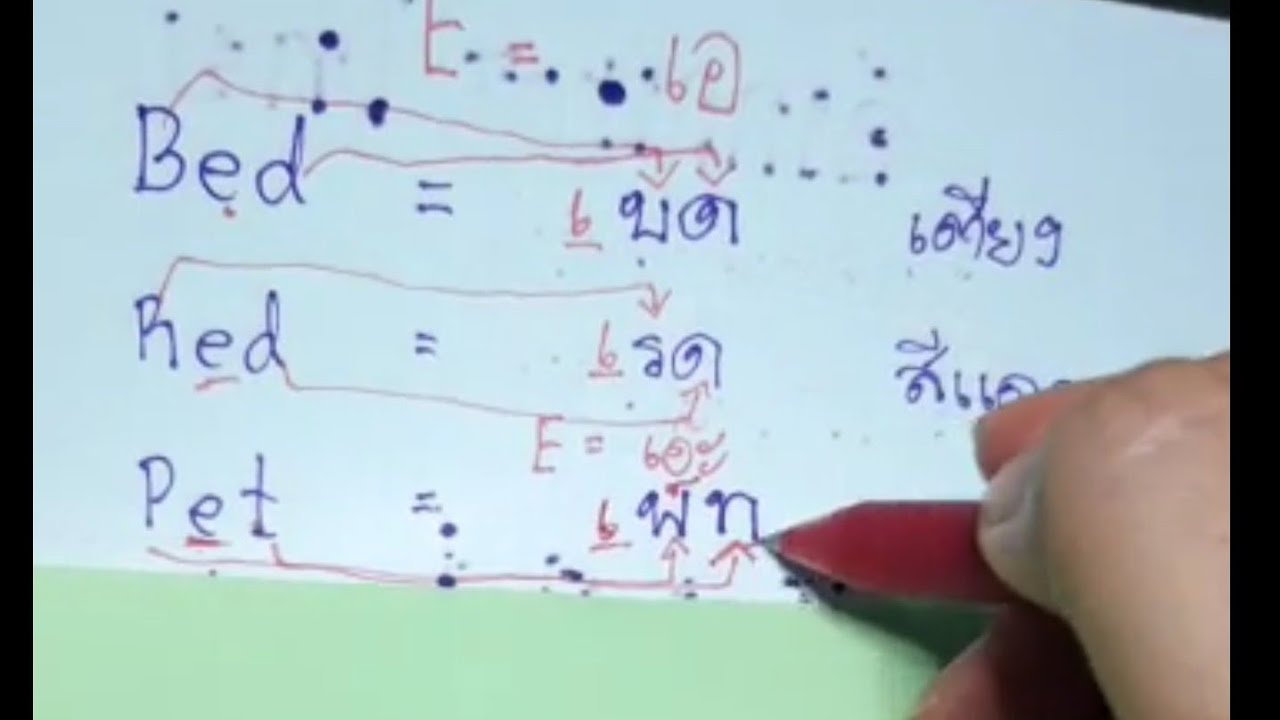 E = เอ
Bed = เบด เตียง
Red = เรด สีแดง
E = เอะ
Pet = เพ็ท